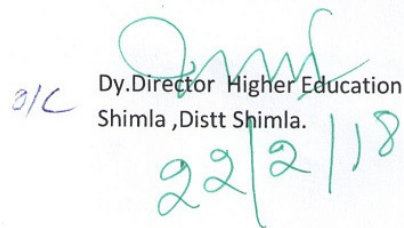 O/C Dy.Director Higher Education
Shimla ,Distt Shimla.
22/2/18